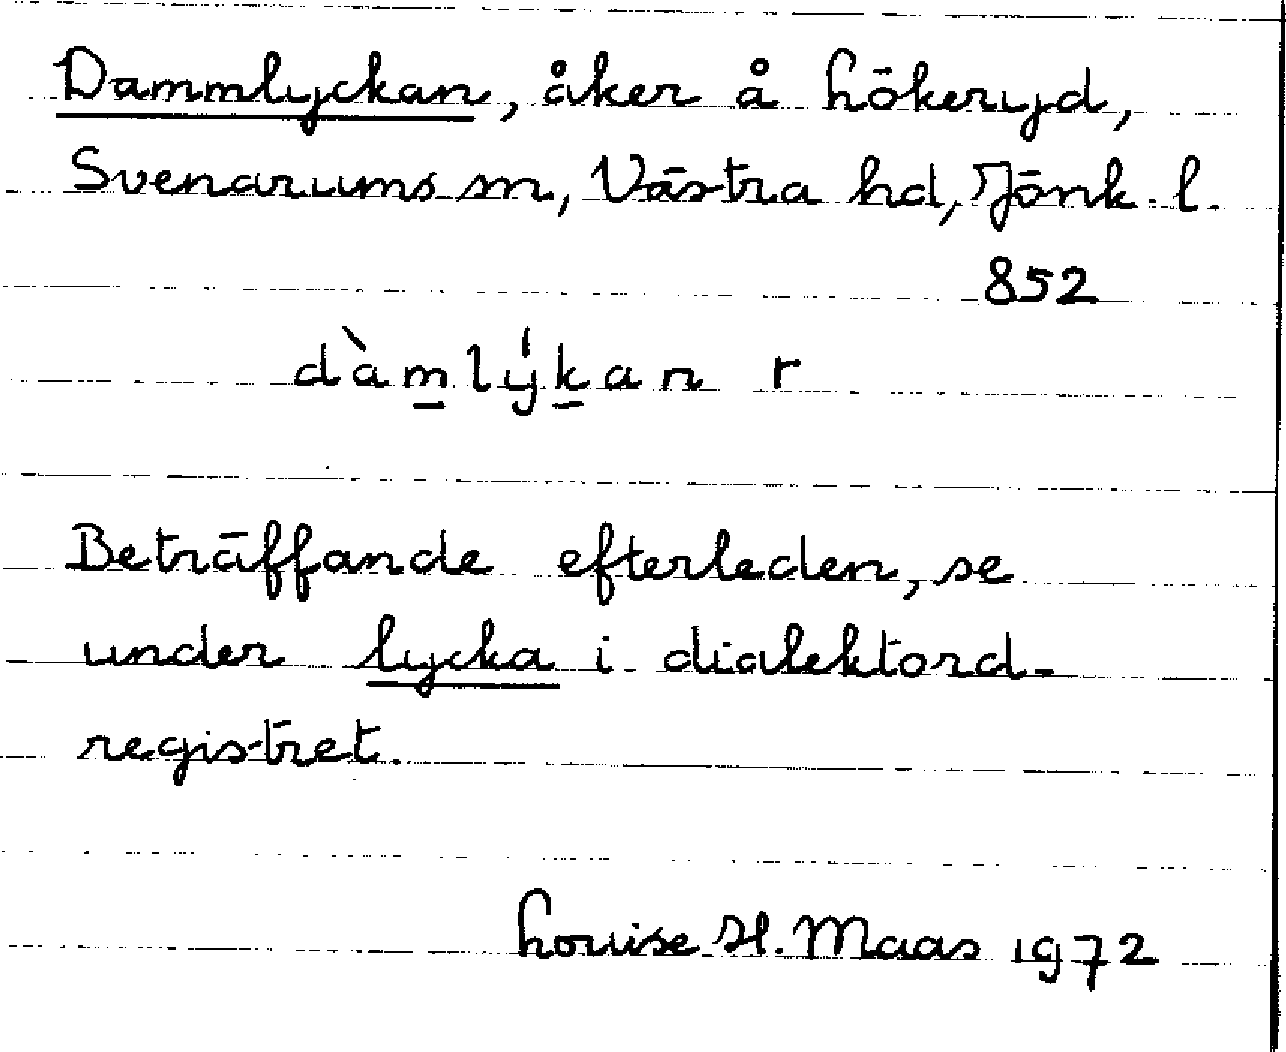 Dammlyckan, åker å Lökeryd,
Svenarums sn, Västra hd, Jönk. l.
852
dàm̲lýk̲an r
Beträffande efterleden, se
under lycka i dialektord-
registret.
Louise H. Maas 1972